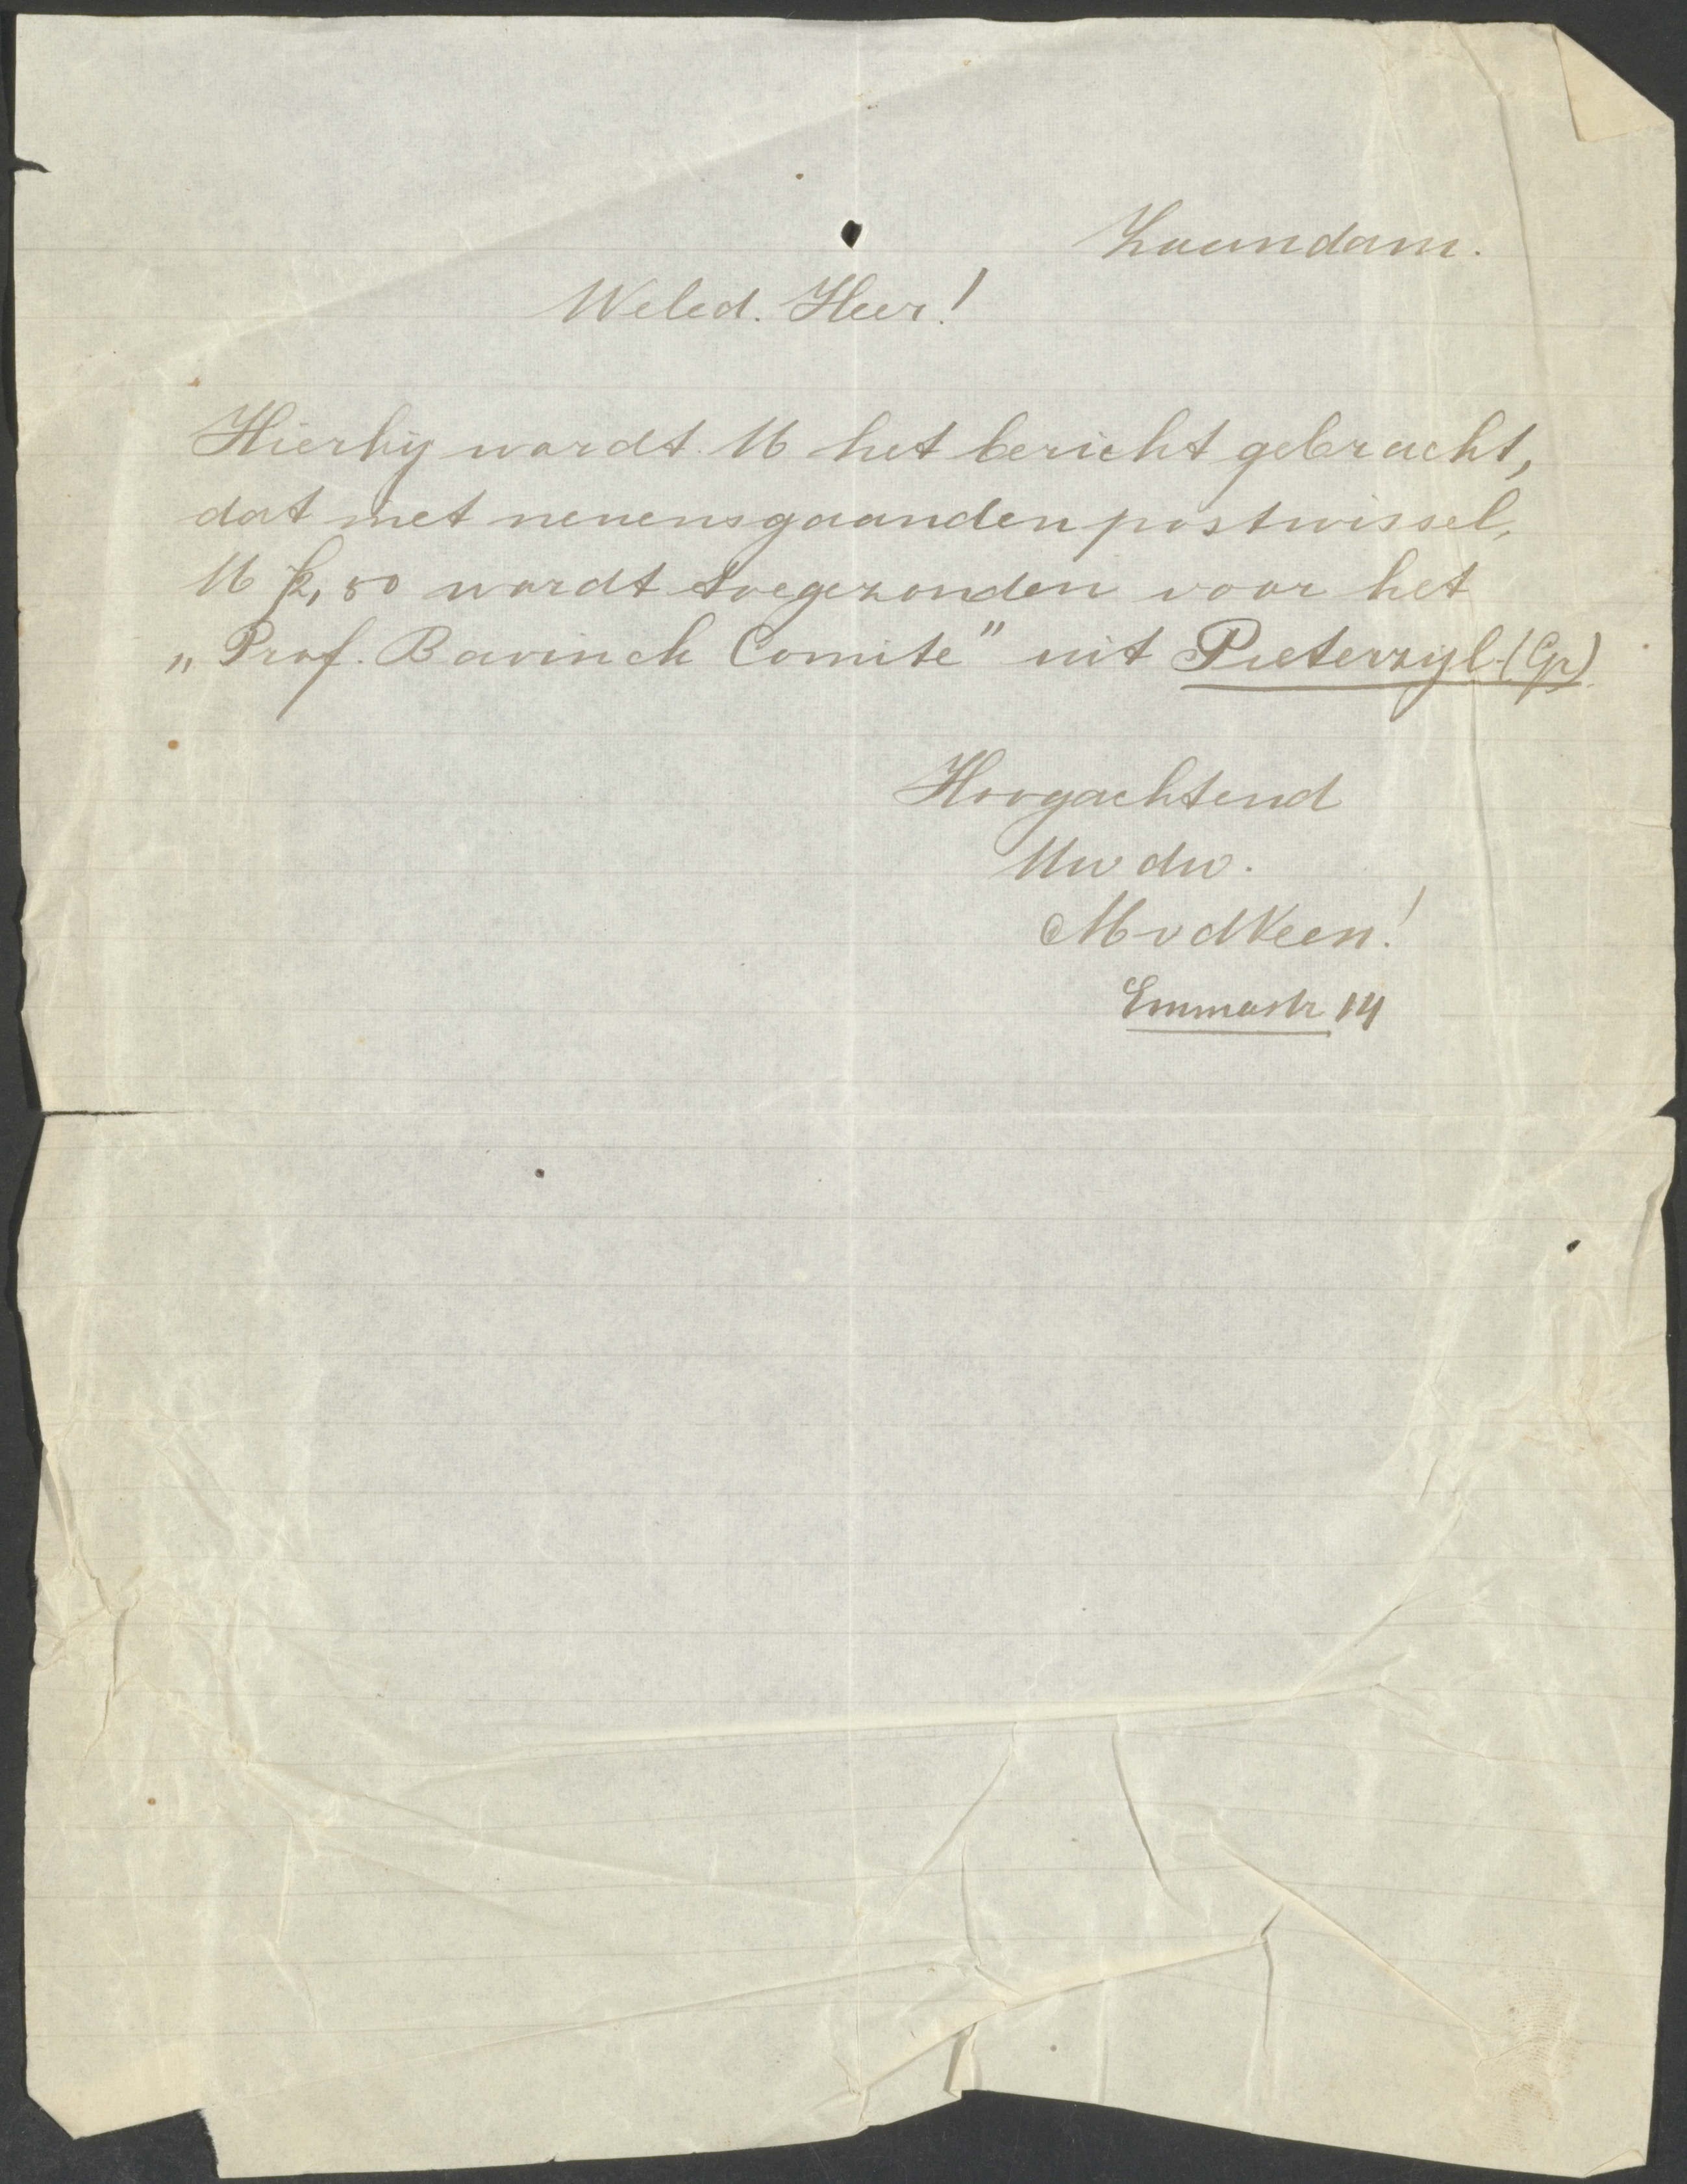 Zaandam.
Weled. Heer!
Hierbij wordt U het bericht gebracht,
dat met nevensgaanden postwissel,
U f2,50 wordt toegezonden voor het
„Prof. Bavinck Comite" uit Pieterzyl (Gr)
Hoogachtend
Uw dw.
M v d Veen!
Emmastr 14